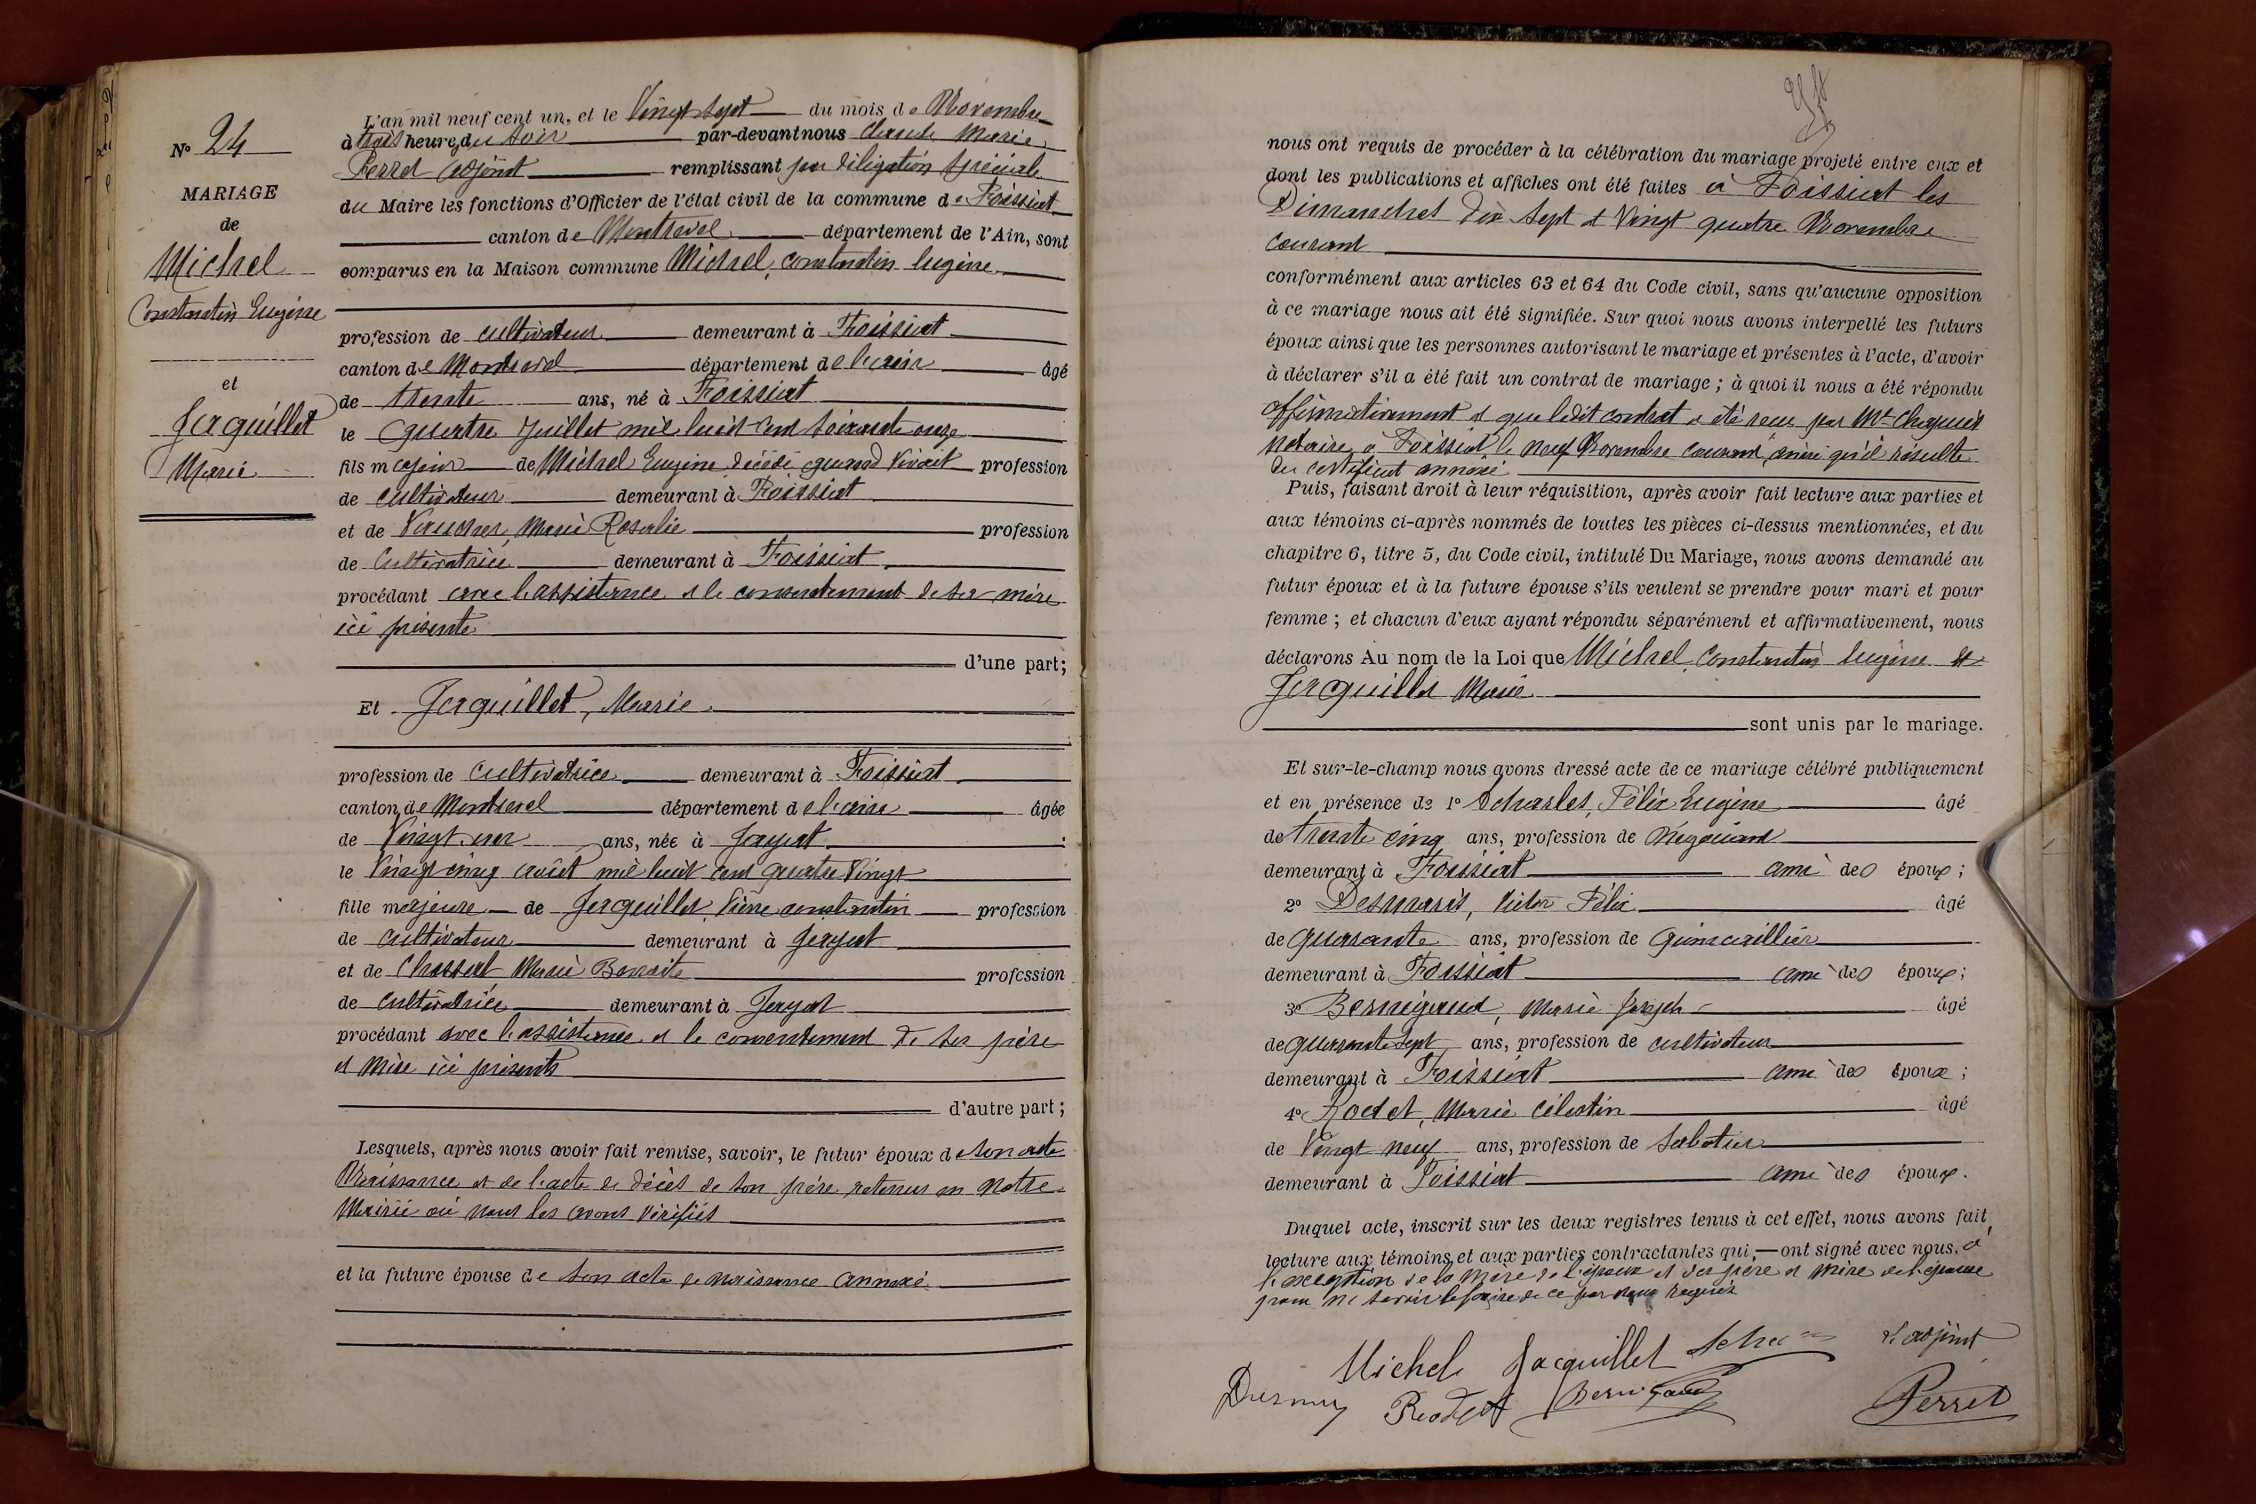 L'an mil neuf cent un, et le Vingt sept du mois de Novembre
à trois heures du soir par-devant nous Claude Marie
Perret adjoint remplissant par délégation spéciale
du Maire les fonctions d'Officier de l'état civil de la commune de Foissiat
canton de Montrevel département de l'Ain, sont
comparus en la Maison commune Michel, Constantin Eugène
No 24
MARIAGE
de
Michel
Constantin Eugène
et
Jacquillet
Marie
profession de cultivateur demeurant à Foissiat
canton de Montrevel département de l'ain âgé
de trente ans, né à Foissiat
le quatre Juillet mil huit cent soixante onze
fils majeur de Michel Eugène décédé quand vivait profession
de cultivateur demeurant à Foissiat
et de Vaucher, Marie Rosalie profession
de Cultivatrice demeurant à Foissiat
procédant avec l'assistance et le consentement de sa mère
ici présente
d'une part;
Et Jacquillet, Marie
profession de cultivatrice demeurant à Foissiat
canton de Montrevel département de l'ain âgée
de Vingt un ans, née à Jayat
le Vingt cinq août mil huit cent quatre Vingt
fille majeure de Jacquillet, Pierre constantin profession
de cultivateur demeurant à Jayat
et de Chossat Marie Benoite profession
de cultivatrice demeurant à Jayat
procédant avec l'assistance et le consentement de ses père
et mère ici présents
d'autre part;
Lesquels, après nous avoir fait remise, savoir, le futur époux de son acte
Naissance et de l'acte de décès de son père retenus en notre
Mairie où nous les avons vérifiés
et la future épouse de son acte de naissance annexé
nous ont requis de procéder à la célébration du mariage projeté entre eux et
dont les publications et affiches ont été faites à Foissiat les
Dimanches Dix sept et Vingt quatre Novembre
courant
conformément aux articles 63 et 64 du Code civil, sans qu'aucune opposition
à ce mariage nous ait été signifiée. Sur quoi nous avons interpellé les futurs
époux ainsi que les personnes autorisant le mariage et présentes à l'acte, d'avoir
à déclarer s'il a été fait un contrat de mariage; à quoi il nous a été répondu
affirmativement et que ledit contrat a été recu par Mt
notaire à Foissiat le neuf Novembre courant, ainsi qu'il résulte
du certificat annexé
Puis, faisant droit à leur réquisition, après avoir fait lecture aux parties et
aux témoins ci-après nommés de toutes les pièces ci-dessus mentionnées, et du
chapitre 6, titre 5, du Code civil, intitulé Du Mariage, nous avons demandé au
futur époux et à la future épouse s'ils veulent se prendre pour mari et pour
femme; et chacun d'eux ayant répondu séparément et affirmativement, nous
déclarons Au nom de la Loi que Michel, Constantin Eugène et
Jacquillet Marie
sont unis par le mariage.
Et sur-le-champ nous avons dressé acte de ce mariage célébré publiquement
et en présence de 1o Scharles, Félix Eugène âgé
de trente cinq ans, profession de négociant
demeurant à Foissiat ami des époux;
2o Desmaris, Victor Félix âgé
de quarante ans, profession de Quincaillier
demeurant à Foissiat ami des époux;
3o Bernigaud, Marie Joseph âgé
de quarante sept ans, profession de cultivateur
demeurant à Foissiat ami des époux;
4o Rodet, Marie Célestin âgé
de Vingt neuf ans, profession de sabotier
demeurant à Foissiat ami des époux.
Duquel acte, inscrit sur les deux registres tenus à cet effet, nous avons fait
lecture aux témoins et aux parties contractantes qui, ont signé avec nous, à
l'exception de la mère de l'époux et des père et mère de l'épouse
pour ne savoir le faire de ce par nous requis
Michel Jacquillet L'adjoint
Rodet Bernigaud Perret